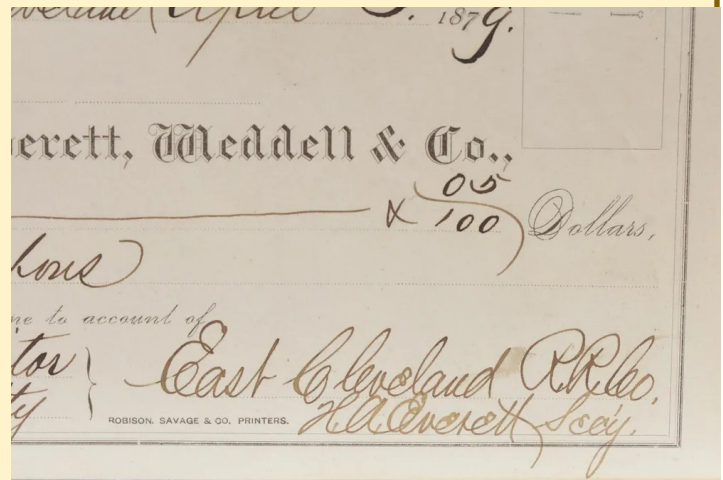 Cleveland April 5. 1879.
erett, Weddell & Co.,
& 05/100 Dollars,
hons
me to account of
tor
East Cleveland R.R. Co.
ty
ROBISON, SAVAGE & CO. PRINTERS.
H.A. Everett Secy.